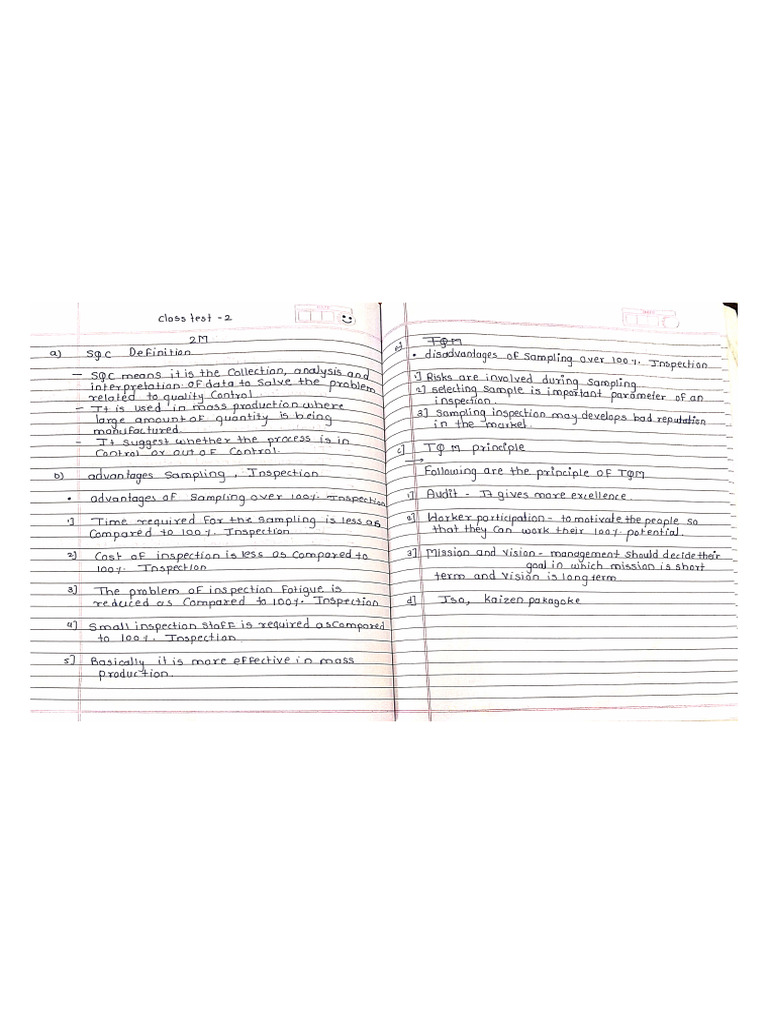 Class test - 2
2M
a) SQC Definition
- SQC means it is the Collection, analysis and
interpretation of data to Solve the problem
related to quality Control.
- It is used in mass production where
large amount of quantity is being
manufactured.
- It suggest whether the process is in
Control or out of Control.
b) advantages Sampling, Inspection
• advantages of Sampling over 100%. Inspection
1] Time required for the Sampling is less as
Compared to 100%. Inspection
2) Cost of inspection is less as Compared to
100%. Inspection
3] The problem of inspection fatigue is
reduced as Compared to 100%. Inspection
4] Small inspection staff is required as Compared
to 100%. Inspection
5] Basically it is more effective in mass
production.
TQM
• disadvantages of Sampling over 100%. Inspection
1] Risks are involved during sampling
2] selecting sample is important parameter of an
inspection.
3] Sampling inspection may develops bad reputation
in the market
c] TQM principle
→ Following are the principle of TQM
1] Audit - It gives more excellence.
2] Worker participation - to motivate the people so
that they Can work their 100% potential.
3] Mission and Vision - management should decide their
goal in which mission is short
term and Vision is long term
d] Iso, kaizen pakagoke